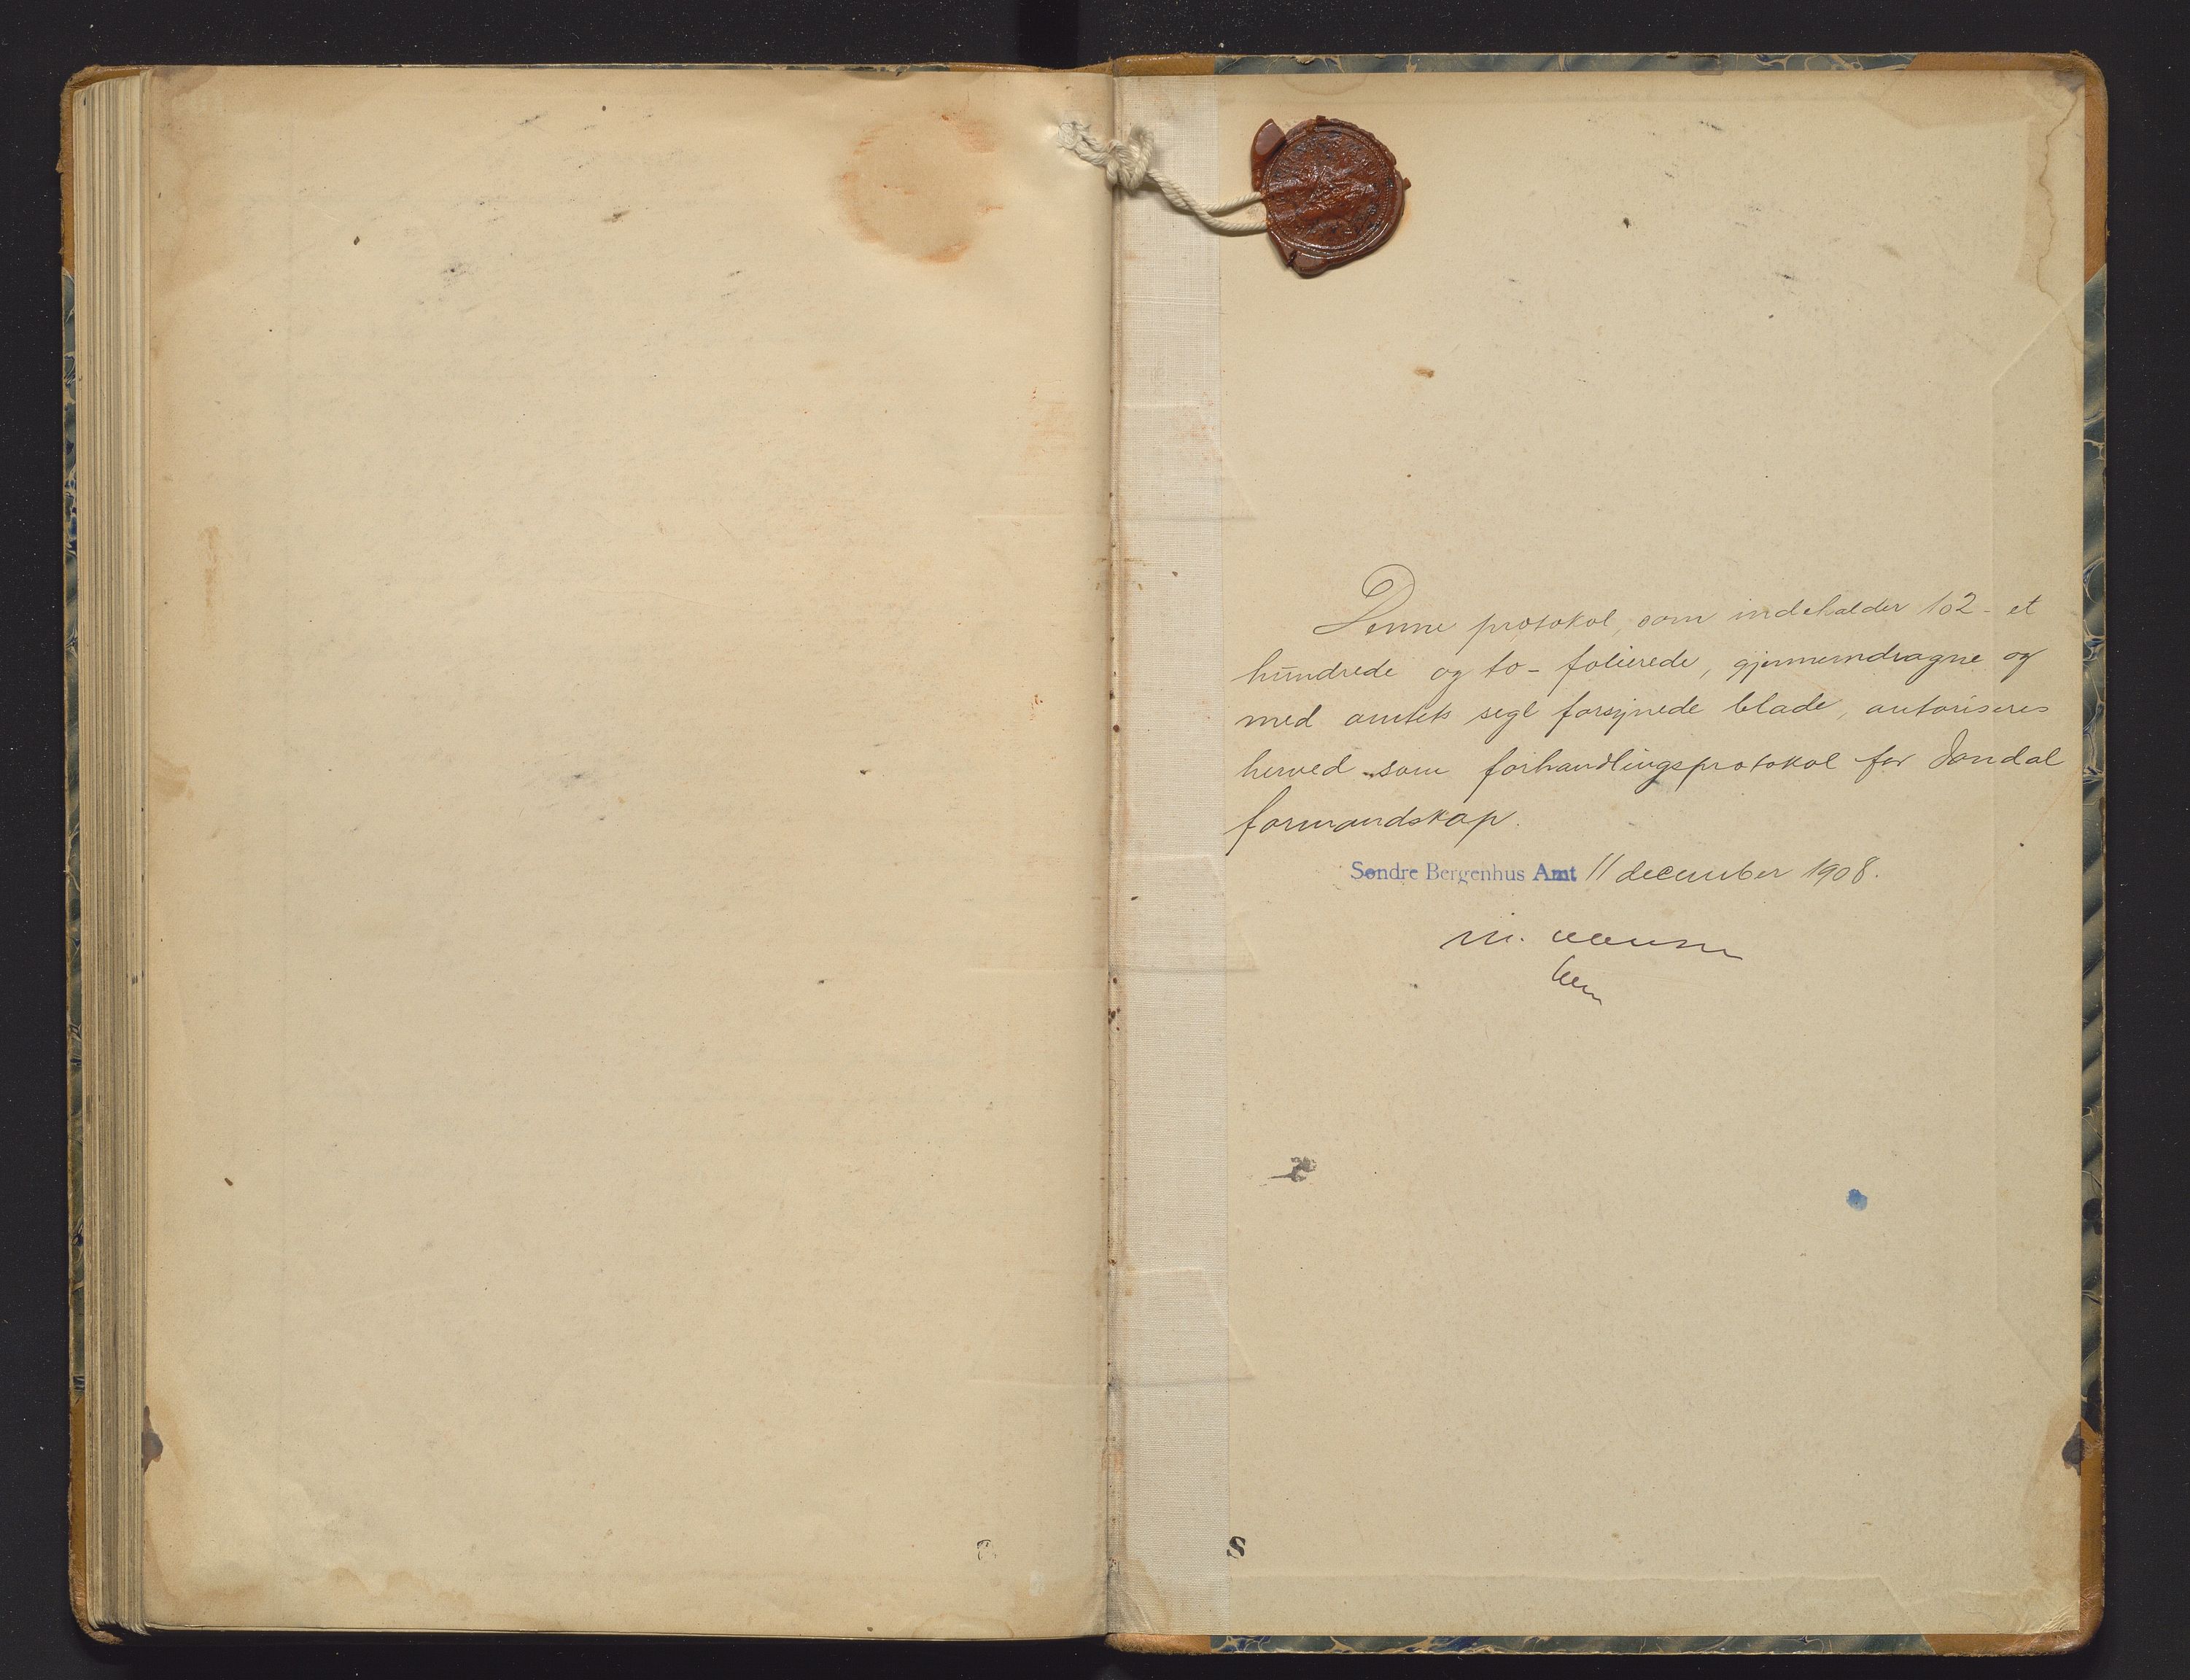 Denne protokol, som indeholder 102 - et
hundrede og to - folierede, gjennemdragne og
med amtets segl forsynede blade, autoriseres
herved som forhandlingsprotokol for Jondal
formandskap.
Søndre Bergenhus Amt 11 december 1908.
S